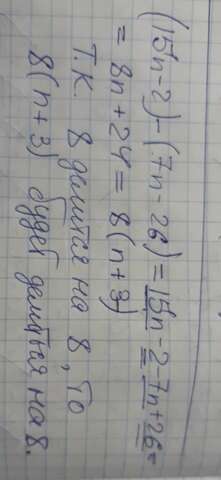 (15n-2)-(7n-26)=15n-2-7n+26=
=8n+24=8(n+3)
Т.К. 8 делится на 8, то
8(n+3) будет делиться на 8.